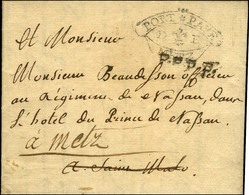 PORT PAYÉ
P.P.P.P.
A Monsieur
Monsieur Beaudesson officier
au Régiment de Nassau, dans
L'hotel du Prince de Nassau.
à Metz
A Saint Malo